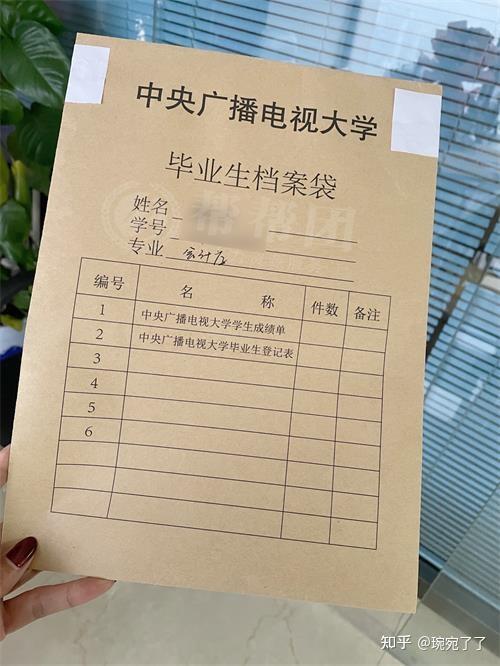 中央广播电视大学
毕业生档案袋
帮帮团
姓名
学号
专业 会计学
编号 名 称 件数 备注
1 中央广播电视大学学生成绩单
2 中央广播电视大学毕业生登记表
3
4
5
6
知乎 @琬宛了了